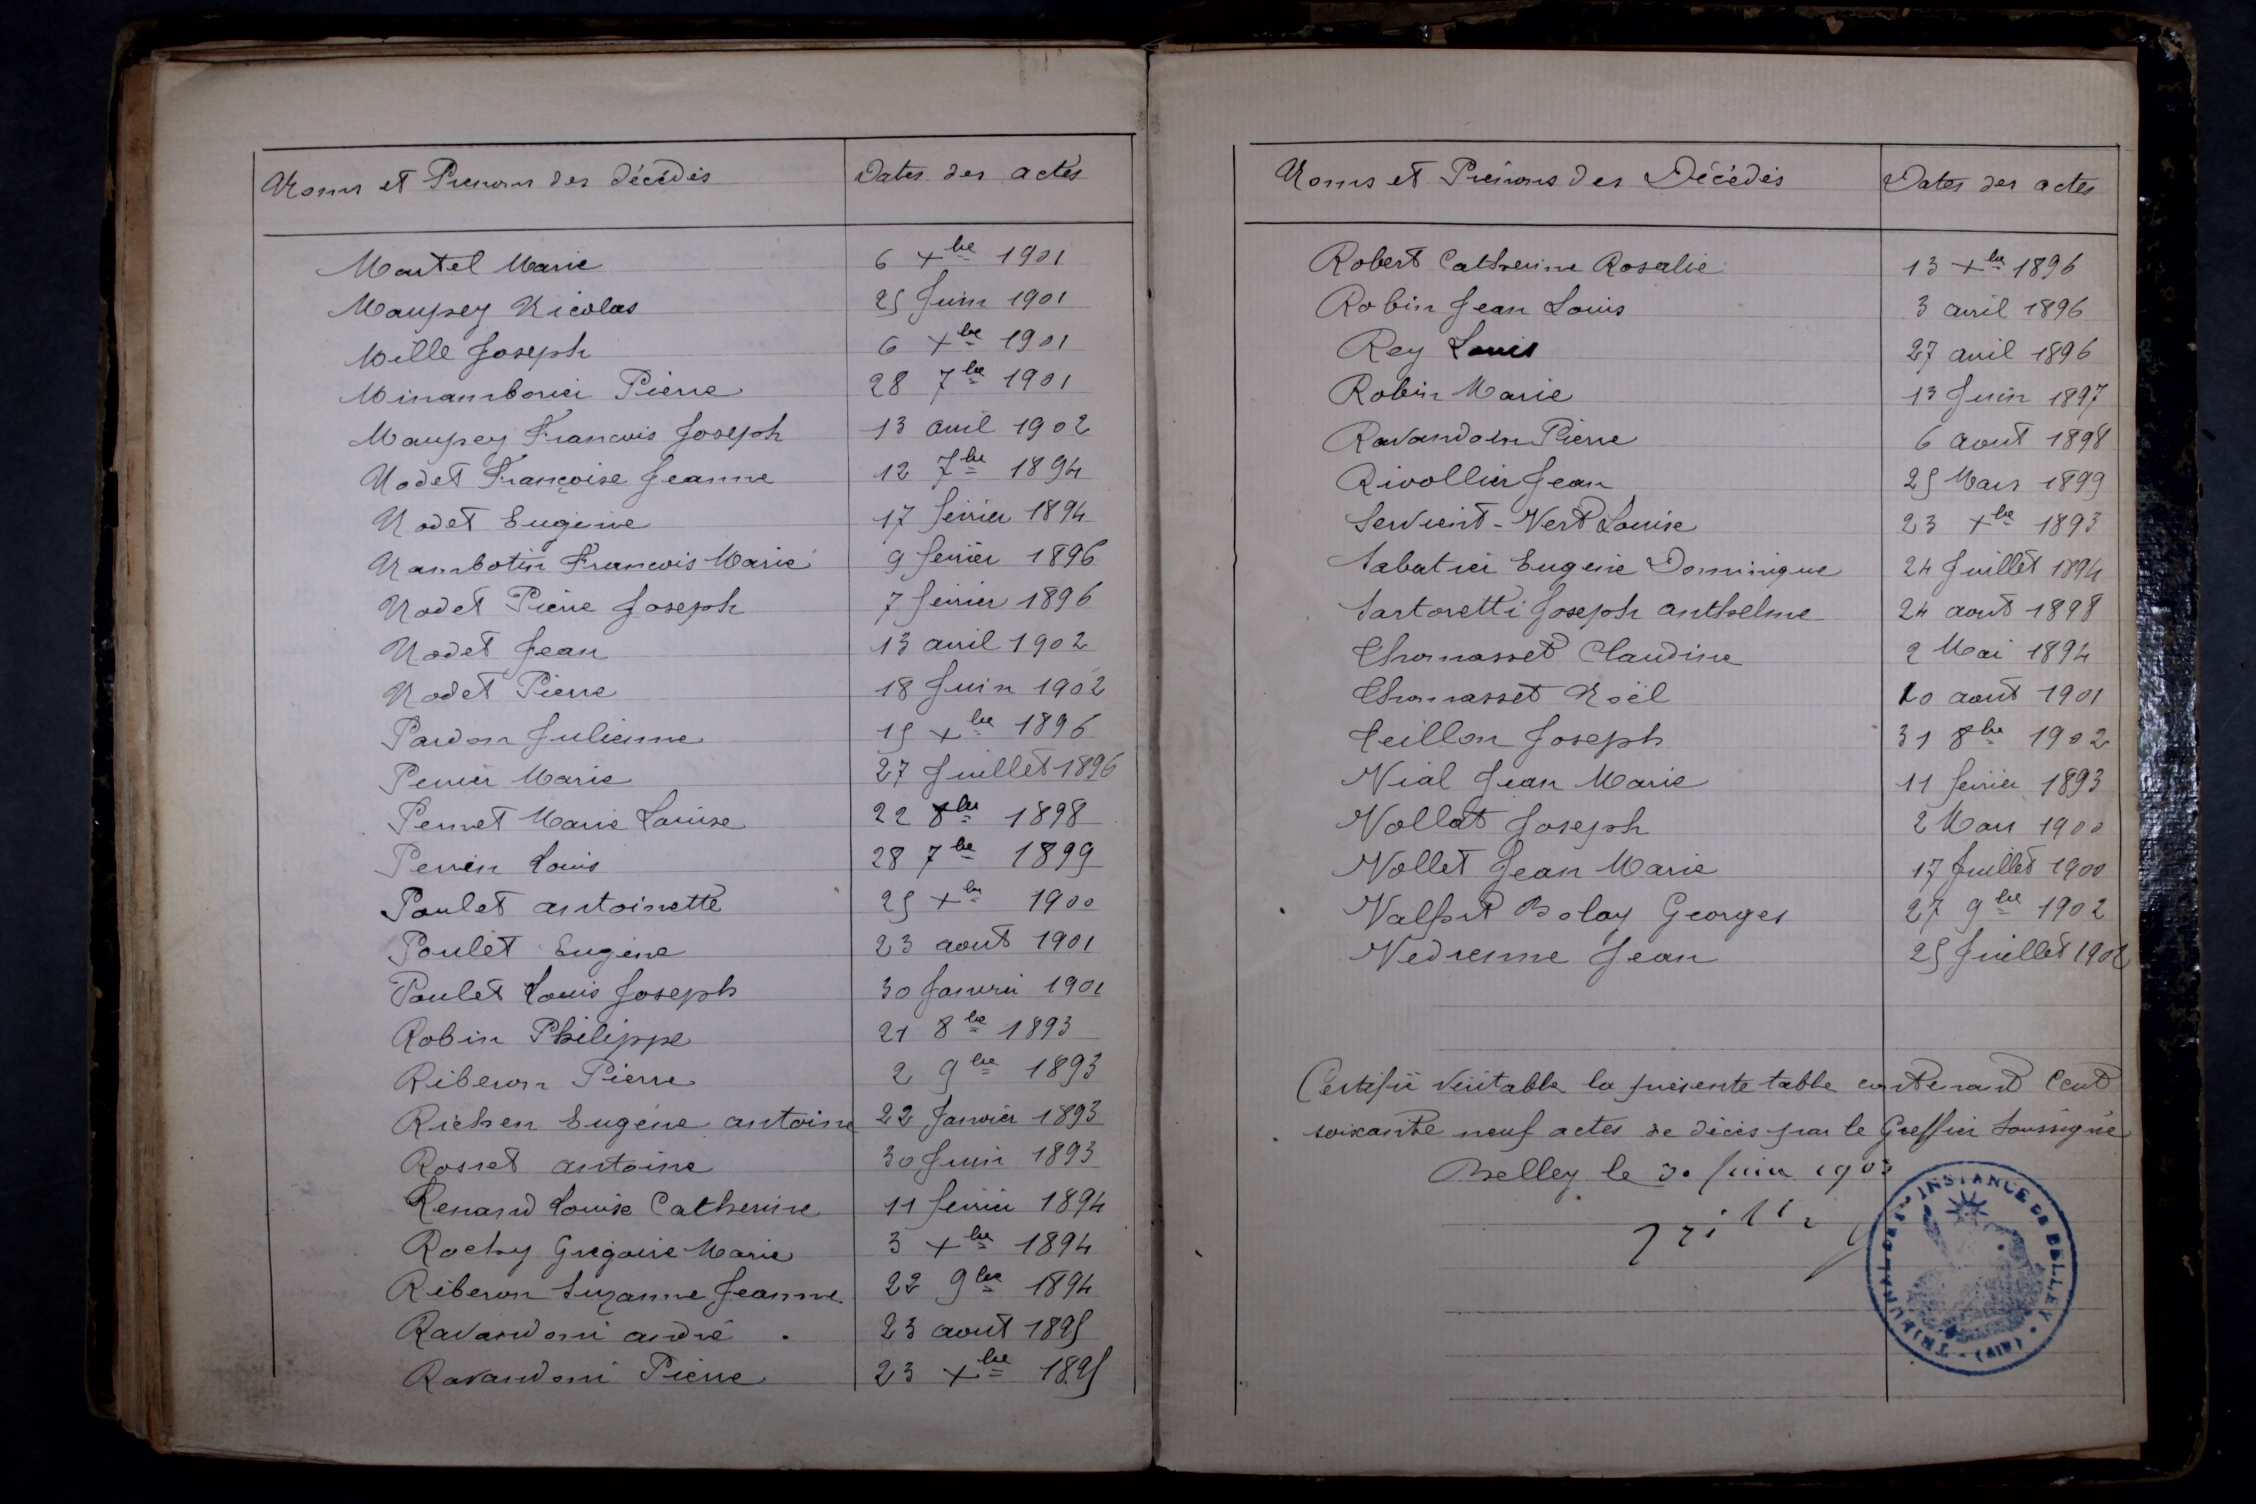 Noms et Prenoms des décédés
Dates des actes
Martel Marie
6 Xbre 1901
Maupey Nicolas
25 Juin 1901
Mille Joseph
6 Xbre 1901
Minamborier Pierre
28 7bre 1901
Maupey Francois Joseph
13 avril 1902
Nodet Françoise Jeanne
12 7bre 1894
Nodet Eugénie
17 février 1894
Nambotin Francois Marie
9 février 1896
Nodet Pierre Joseph
7 février 1896
Nodet Jean
13 avril 1902
Nodet Pierre
18 Juin 1902
Pardon Julienne
15 Xbre 1896
Perrier Marie
27 Juillet 1896
Pernet Marie Louise
22 8bre 1898
Perrin Louis
28 7bre 1899
Poulet antoinette
25 Xbre 1900
Poulet Eugène
23 aout 1901
Poulet Louis Joseph
30 Janvier 1901
Robin Philippe
21 8bre 1893
Riberon Pierre
2 9bre 1893
Richen Eugéne antoine
22 Janvier 1893
Rosset antoine
30 Juin 1893
Renard Louise Catherine
11 février 1894
Rochy Grégoire Marie
3 Xbre 1894
Riberon Suzanne Jeanne
22 9bre 1894
Ravandoni andré
23 aout 1895
Ravandoni Pierre
23 Xbre 1895
Noms et Prénoms des Décédés
Dates des actes
Robert Catherine Rosalie
13 Xbre 1896
Robin Jean Louis
3 avril 1896
Rey Louis
27 avril 1896
Robin Marie
13 Juin 1897
Ravandoin Pierre
6 aout 1898
Rivollier Jean
25 Mars 1899
Servient-Vert Louise
23 Xbre 1893
Sabatier Eugénie Dominique
24 Juillet 1894
Sartoretti Joseph anthelme
24 aout 1898
Thomasset Claudine
2 Mai 1894
Thomasset Noël
10 aout 1901
Teillon Joseph
31 8bre 1902
Vial Jean Marie
11 février 1893
Vollat Joseph
2 Mars 1900
Vollet Jean Marie
17 Juillet 1900
Valfort Bolay Georges
27 9bre 1902
Vedrenne Jean
25 Juillet 1902
Certifié véritable la présente table contenant Cent
soixante neuf actes de décès par le Greffier Soussigné
Belley le 30 Juin 1903
TRIBUNAL DE 1re INSTANCE DE BELLEY (AIN)